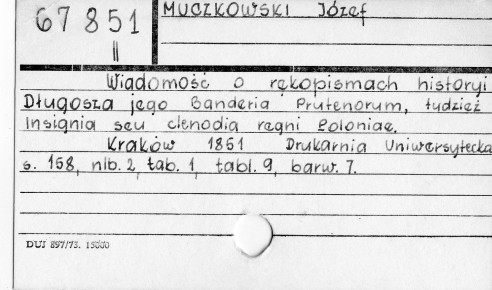 67851
II
MUCZKOWSKI Józef
Wiadomość o rękopismach historyi
Długosza jego Banderia Prutenorum, tudzież
Insignia seu clenodia regni Poloniae.
Kraków 1851 Drukarnia Uniwersytecka
s. 158, nlb. 2, tab. 1, tabl. 9, barw. 7.
DUJ 897/73. 15000